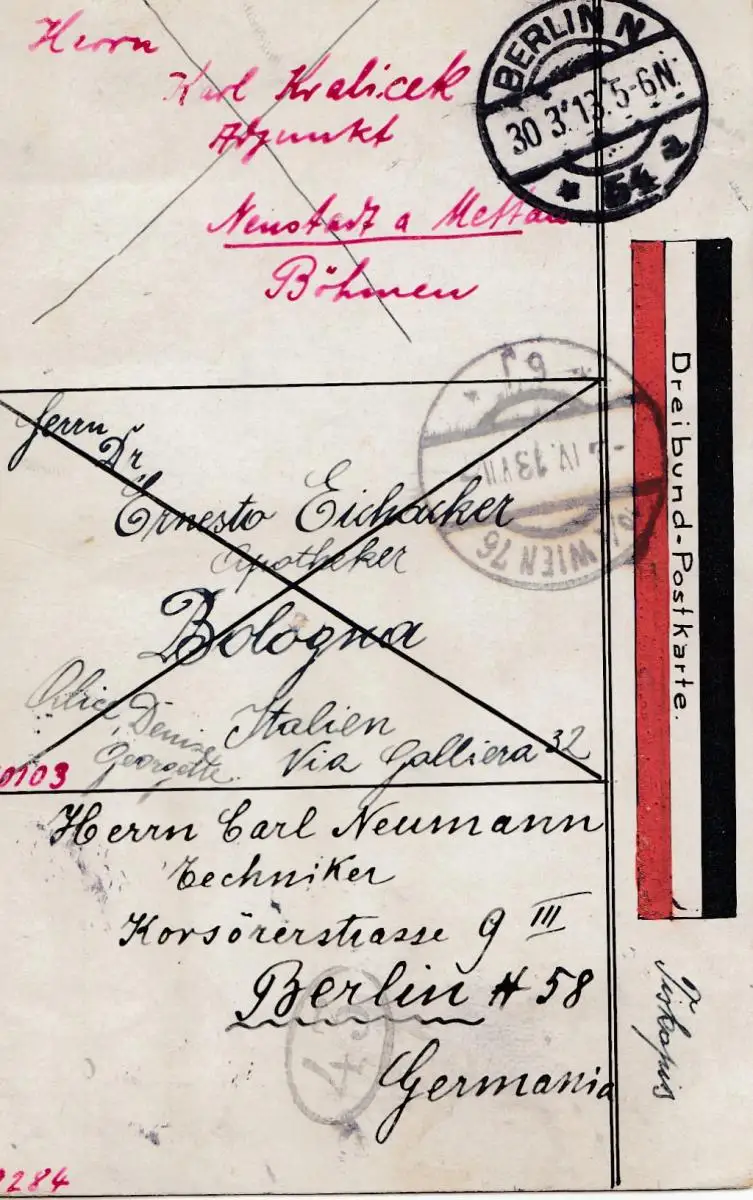 Herrn
Karl Kralicek
Adjunkt
Neustadt a Mettau
Böhmen
BERLIN N
30 3.13.5-6N.
* 54 a
Dreibund-Postkarte.
Herrn
Dr
Ernesto Eichacker
Apotheker
Bologna
Italien
Via Galliera 32
Alice, Denise
Georgette.
0103
WIEN 76
IV.13
Herrn Carl Neumann
Techniker
Korsörerstrasse 9 III
Berlin N 58
Germania
43
Tiskopis
284